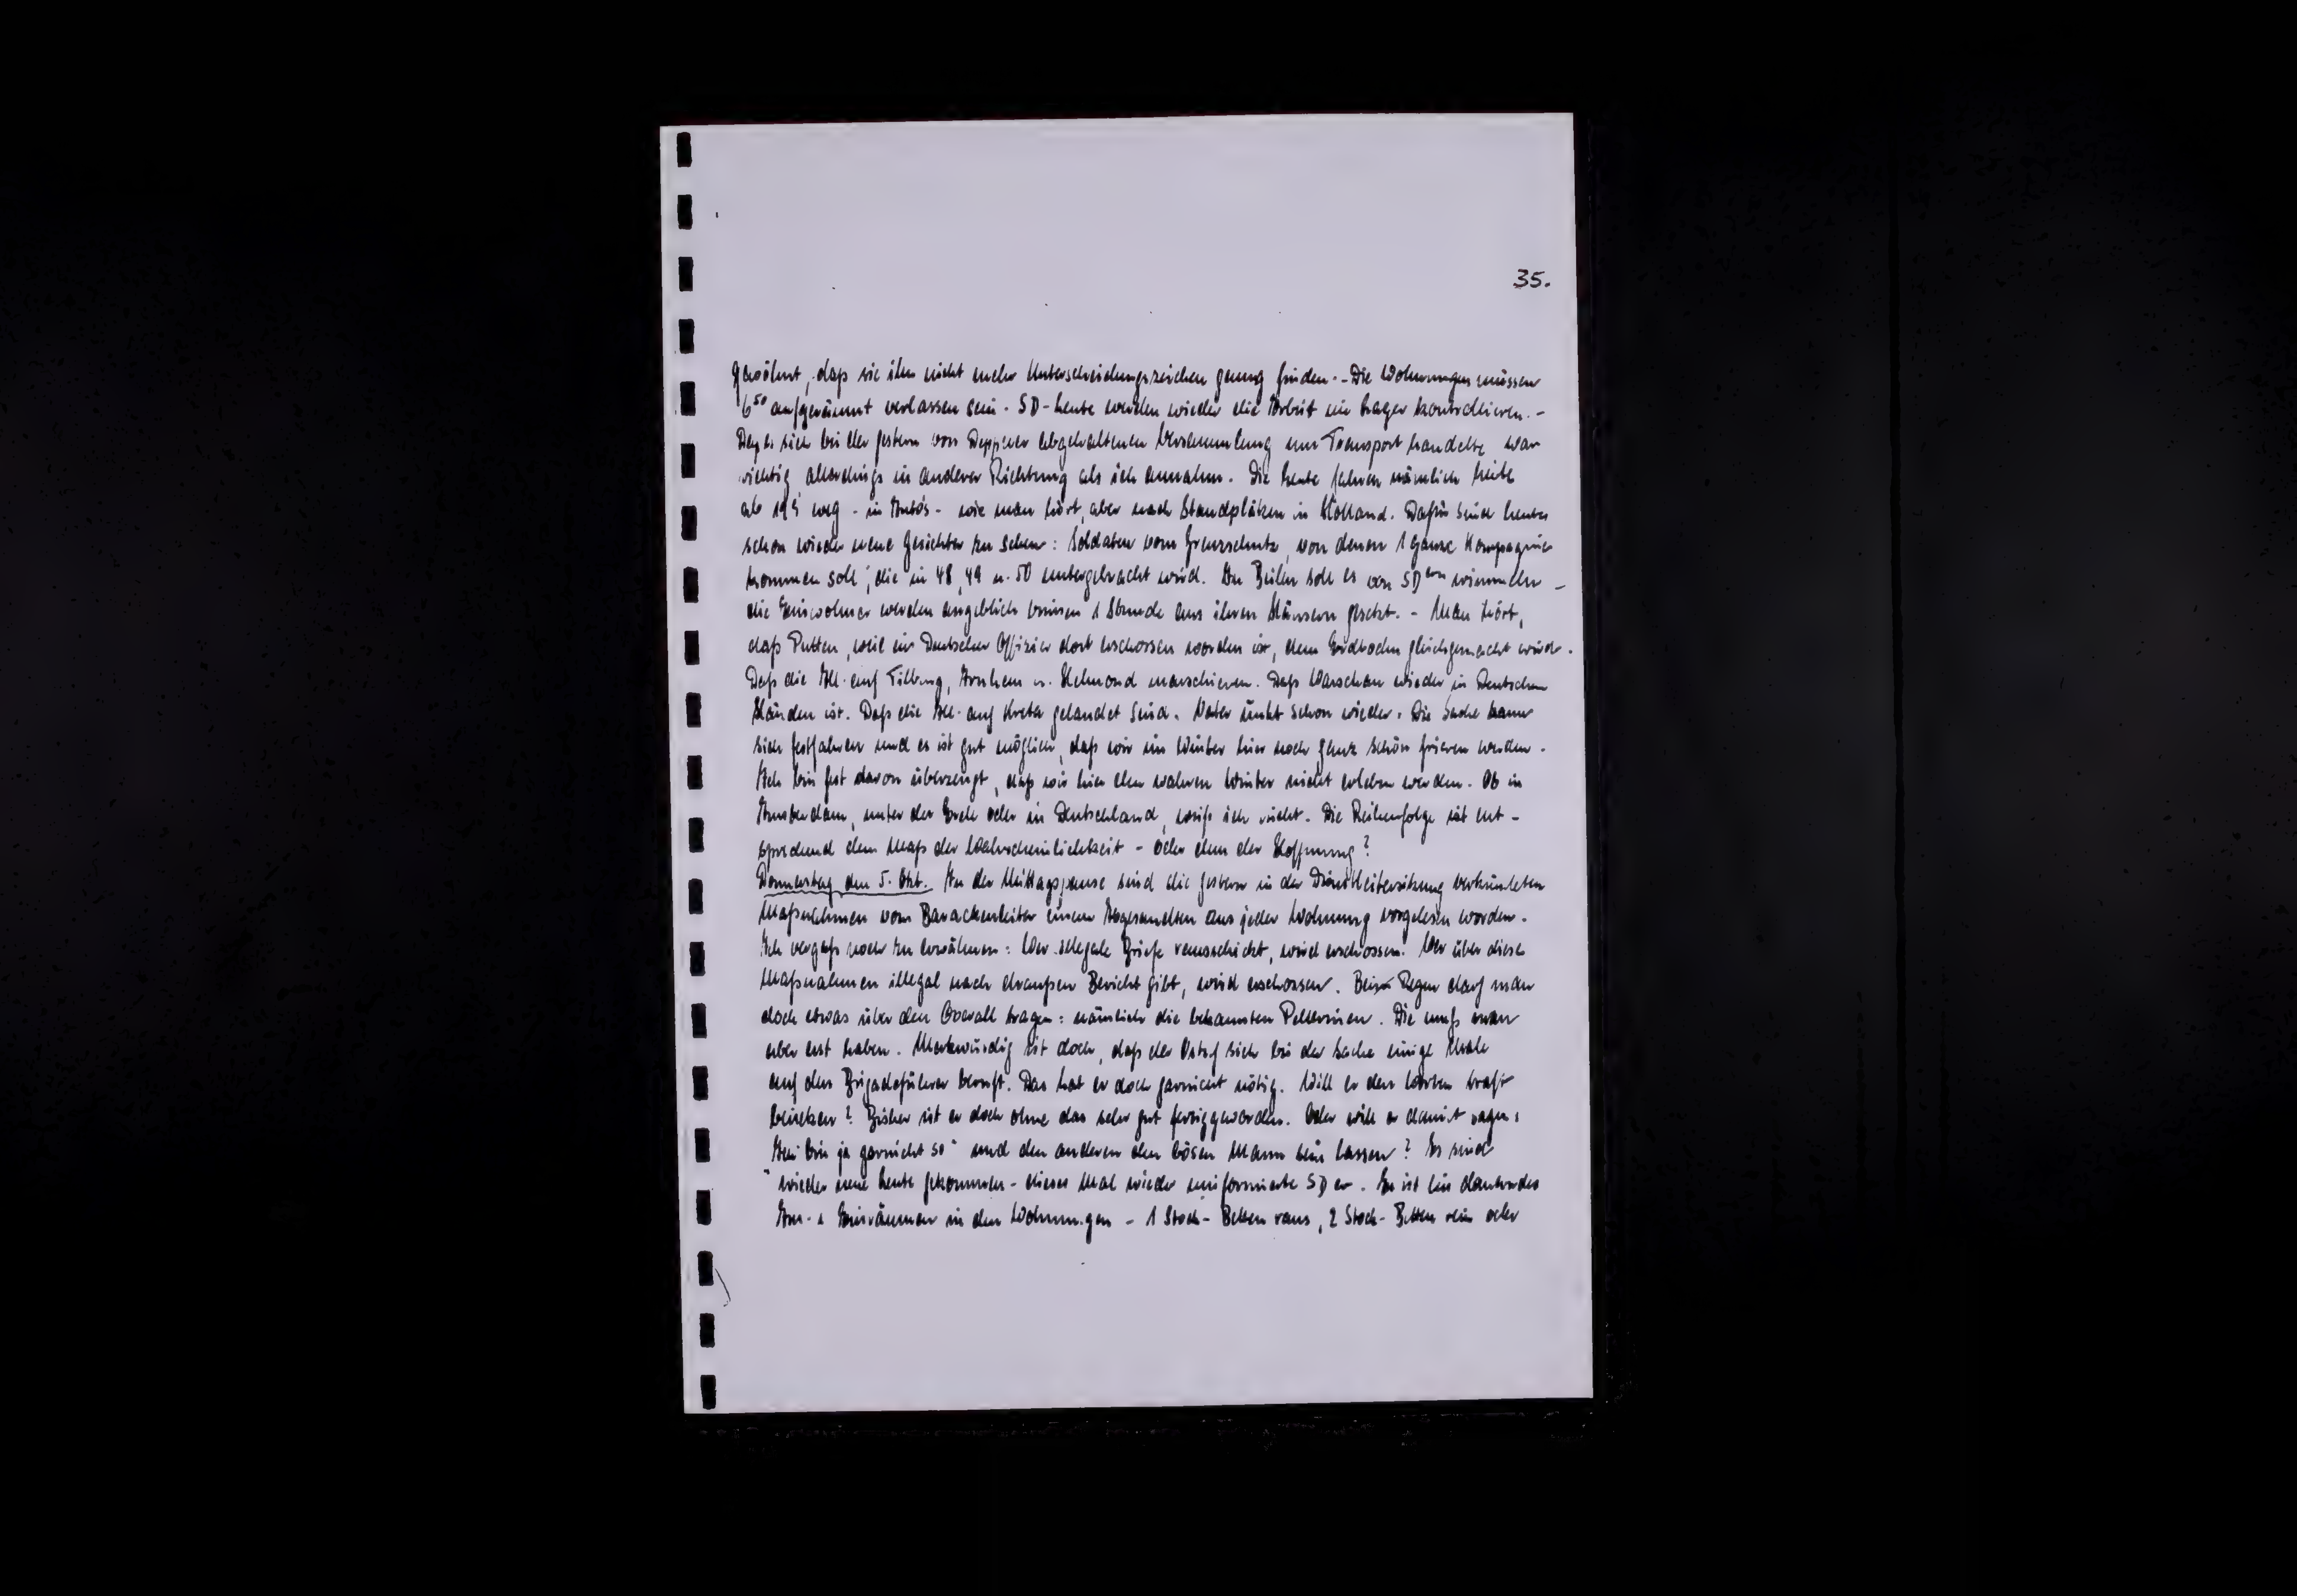 35.
gewöhnt, daß sie ihm nicht mehr Unterscheidungszeichen genug finden. - Die Wohnungen müssen
6⁵⁰ aufgeräumt verlassen sein. SD-Leute werden wieder die Arbeit im Lager kontrollieren. -
Daß es sich bei der gestern von Deppner abgehaltenen Versammlung um Transport handelte war
richtig allerdings in anderer Richtung als ich annahm. Die Leute fahren nämlich heute
ab weg - in Autos - wie man hört, aber nach Standplätzen in Holland. Dafür sind heute
schon wieder neue Gesichter zu sehen: Soldaten vom Grenzschutz, von denen 1 ganze Kompagnie
kommen soll, die in 48, 49 u. 50 untergebracht wird. In Beilen soll es von SDern wimmeln -
die Einwohner werden angeblich binnen 1 Stunde aus ihren Häusern gesetzt. - Man hört,
daß Putten, weil ein Deutscher Offizier dort erschossen worden ist, dem Erdboden gleichgemacht wird.
Daß die All. auf Tilburg, Arnhem u. Helmond marschieren. Daß Warschau wieder in Deutschen
Händen ist. Daß die All. auf Kreta gelandet sind. Vater unkt schon wieder: Die Sache kann
sich festfahren und es ist gut möglich, daß wir im Winter hier noch ganz schön frieren werden.
Ich bin fest davon überzeugt, daß wir hier den wahren Winter nicht erleben werden. Ob in
Amsterdam, unter der Erde oder in Deutschland, weiß ich nicht. Die Reihenfolge ist ent-
sprechend dem Maß der Wahrscheinlichkeit - oder dem der Hoffnung?
Donnerstag den 5. Okt. In der Mittagspause sind die gestern in der Dienstleitersitzung verkündeten
Maßnahmen vom Barackenleiter einem Abgesandten aus jeder Wohnung vorgelesen worden.
Ich vergaß noch zu erwähnen: Wer illegale Briefe rausschickt, wird erschossen. Wer über diese
Maßnahmen illegal nach draußen Bericht gibt, wird erschossen. Bei Regen darf man
doch etwas über den Overall tragen: nämlich die bekannten Pellerinen. Die muß man
aber erst haben. Merkwürdig ist doch, daß der sich bei der Sache einige Male
auf den Brigadeführer beruft. Das hat er doch garnicht nötig. Will er den Worten Kraft
beisetzen? Bisher ist er doch ohne das sehr gut fertiggeworden. Oder will er damit sagen:
Ich bin ja garnicht so" und den anderen den bösen Mann sein lassen? Es sind
wieder neue Leute gekommen - dieses Mal wieder uniformierte SDer. Es ist ein dauerndes
Aus- & Einräumen in den Wohnungen - 1 Stock-Betten raus, 2 Stock-Betten rein oder